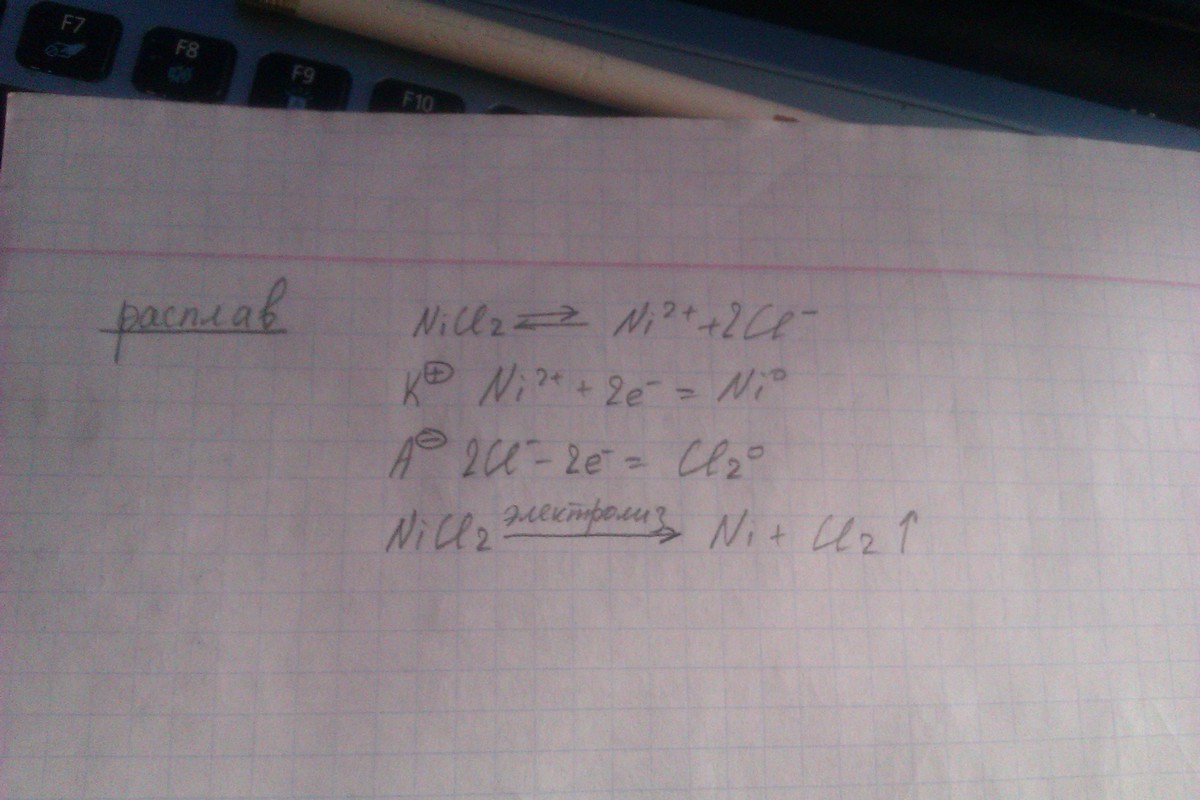 F7
F8
F9
F10
расплав
NiCl₂ ⇌ Ni²⁺ + 2Cl⁻
K⊕ Ni²⁺ + 2e⁻ = Ni⁰
A⊖ 2Cl⁻ - 2e⁻ = Cl₂⁰
электролиз
NiCl₂ → Ni + Cl₂↑